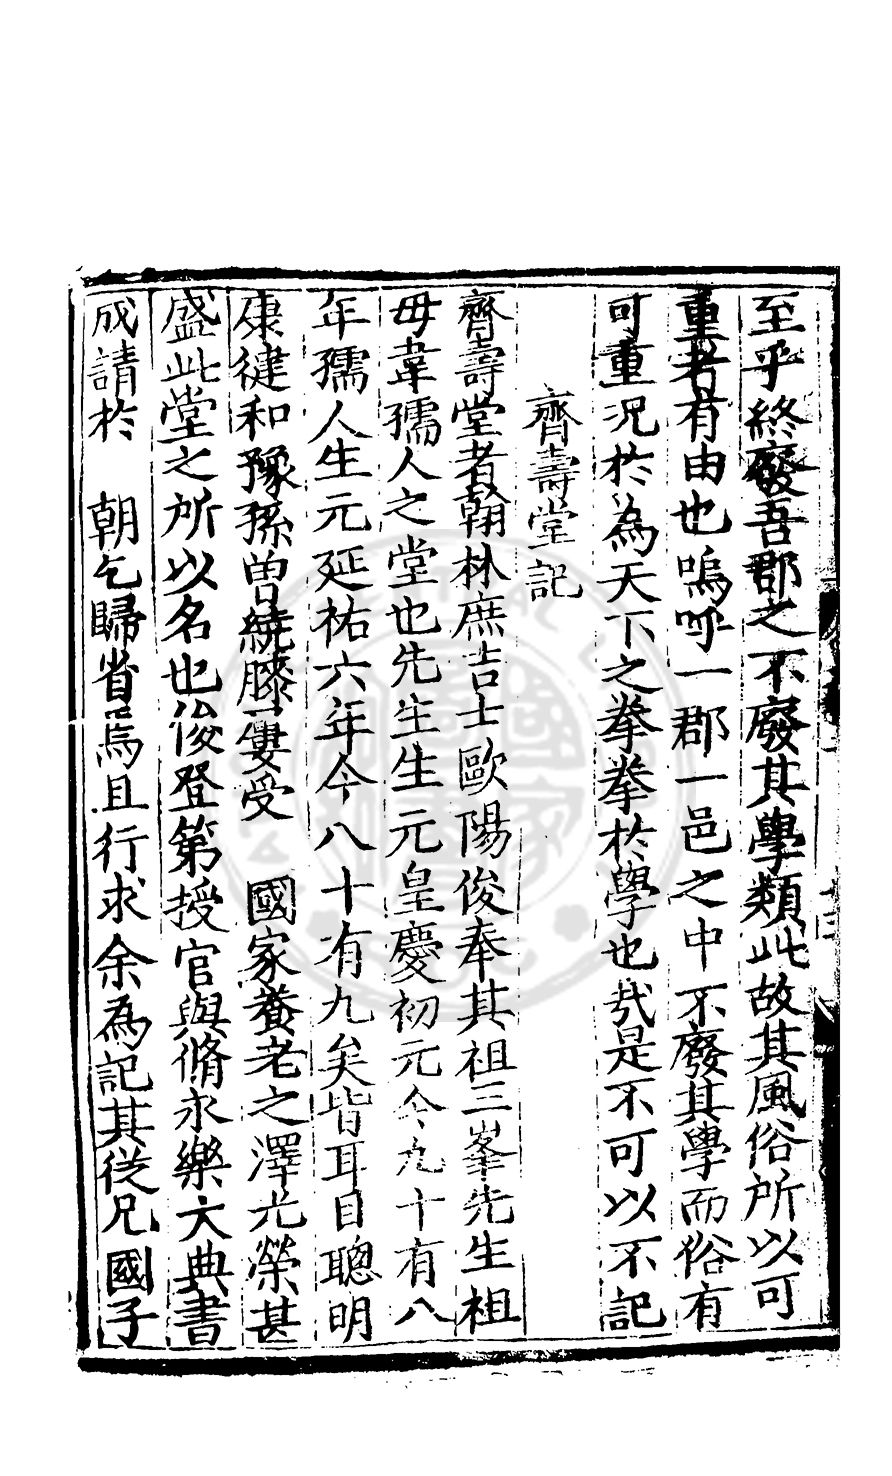 至乎終廢吾郡之不廢其學類此故其風俗所以可
重者有由也嗚呼一郡一邑之中不廢其學而俗有
可重况於為天下之拳拳於學也㢤是不可以不記
齊壽堂記
齊壽堂者翰林庶吉士歐陽俊奉其祖三峯先生祖
母韋孺人之堂也先生生元皇慶初元今九十有八
年孺人生元延祐六年今八十有九矣皆耳目聰明
康健和豫孫曽繞膝婁受 國家養老之澤光榮甚
盛此堂之所以名也俊登第授官與脩永樂大典書
成請於 朝乞歸省焉且行求余為記其従兄國子